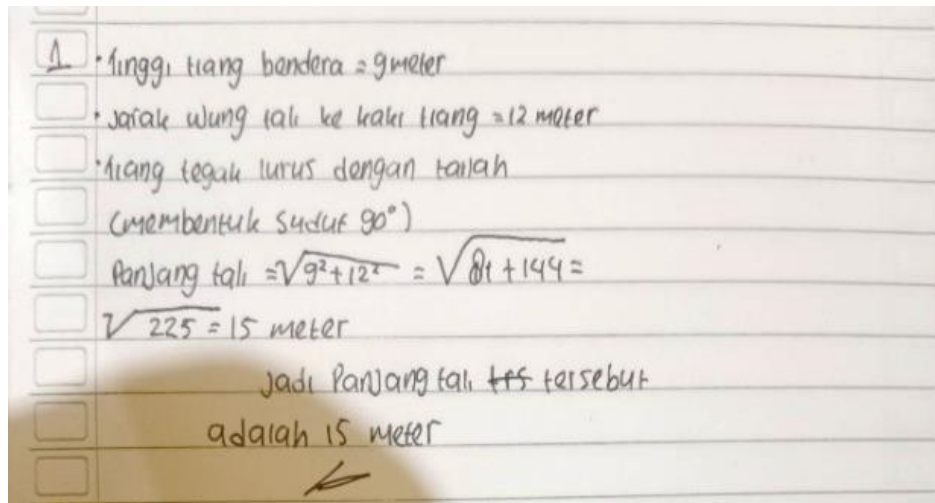 1 · Tinggi tiang bendera = 9 meter
· Jarak ujung tali ke kaki tiang = 12 meter
· Tiang tegak lurus dengan tanah
(membentuk sudut 90°)
Panjang tali = √9²+12² = √81+144 =
√225 = 15 meter
Jadi Panjang tali trs tersebut
adalah 15 meter